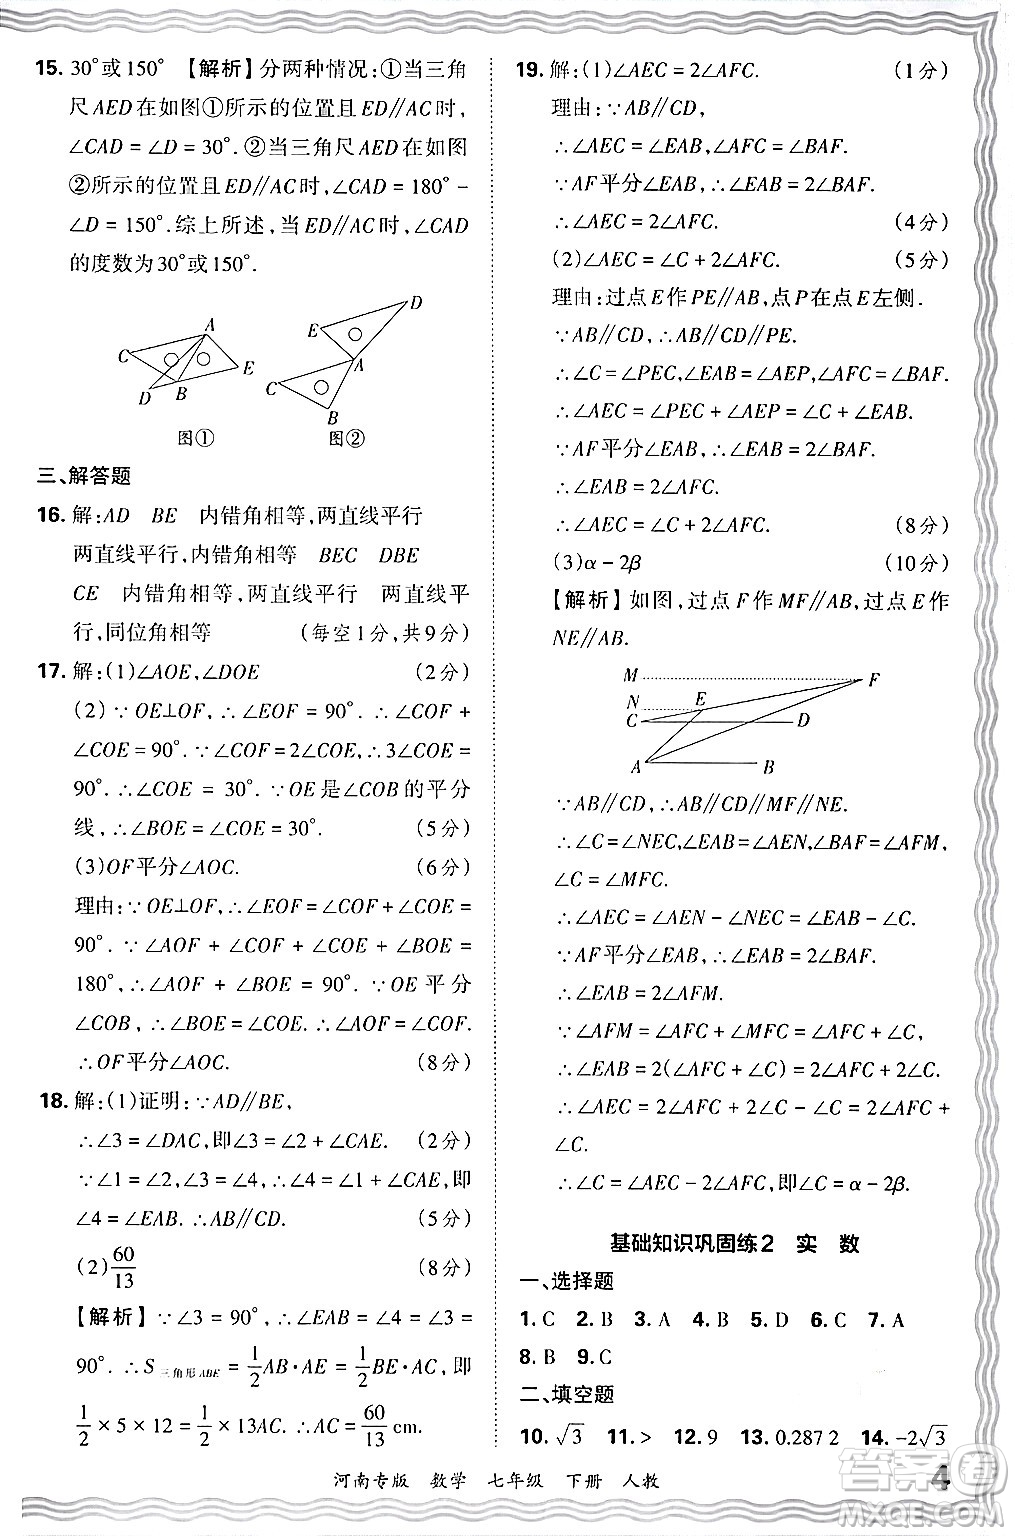 15. 30°或150° 【解析】分两种情况:①当三角
尺AED在如图①所示的位置且ED∥AC时,
∠CAD=∠D=30°.②当三角尺AED在如图
②所示的位置且ED∥AC时,∠CAD=180°-
∠D=150°.综上所述,当ED∥AC时,∠CAD
的度数为30°或150°.
A
C
E
D
B
图①
D
E
A
C
B
图②
三、解答题
16. 解:AD BE 内错角相等,两直线平行
两直线平行,内错角相等 BEC DBE
CE 内错角相等,两直线平行 两直线平
行,同位角相等 (每空1分,共9分)
17. 解:(1)∠AOE,∠DOE (2分)
(2)∵OE⊥OF,∴∠EOF=90°.∴∠COF+
∠COE=90°.∵∠COF=2∠COE,∴3∠COE=
90°.∴∠COE=30°.∵OE是∠COB的平分
线,∴∠BOE=∠COE=30°. (5分)
(3)OF平分∠AOC. (6分)
理由:∵OE⊥OF,∴∠EOF=∠COF+∠COE=
90°.∵∠AOF+∠COF+∠COE+∠BOE=
180°,∴∠AOF+∠BOE=90°.∵OE平分
∠COB,∴∠BOE=∠COE.∴∠AOF=∠COF.
∴OF平分∠AOC. (8分)
18. 解:(1)证明:∵AD∥BE,
∴∠3=∠DAC,即∠3=∠2+∠CAE. (2分)
∵∠1=∠2,∠3=∠4,∴∠4=∠1+∠CAE,即
∠4=∠EAB.∴AB∥CD. (5分)
(2)60/13 (8分)
【解析】∵∠3=90°,∴∠EAB=∠4=∠3=
90°.∴S三角形ABE=1/2AB·AE=1/2BE·AC,即
1/2×5×12=1/2×13AC.∴AC=60/13 cm.
19. 解:(1)∠AEC=2∠AFC. (1分)
理由:∵AB∥CD,
∴∠AEC=∠EAB,∠AFC=∠BAF.
∵AF平分∠EAB,∴∠EAB=2∠BAF.
∴∠AEC=2∠AFC. (4分)
(2)∠AEC=∠C+2∠AFC. (5分)
理由:过点E作PE∥AB,点P在点E左侧.
∵AB∥CD,∴AB∥CD∥PE.
∴∠C=∠PEC,∠EAB=∠AEP,∠AFC=∠BAF.
∴∠AEC=∠PEC+∠AEP=∠C+∠EAB.
∵AF平分∠EAB,∴∠EAB=2∠BAF.
∴∠EAB=2∠AFC.
∴∠AEC=∠C+2∠AFC. (8分)
(3)α-2β (10分)
【解析】如图,过点F作MF∥AB,过点E作
NE∥AB.
M
F
N
E
C
D
A
B
∵AB∥CD,∴AB∥CD∥MF∥NE.
∴∠C=∠NEC,∠EAB=∠AEN,∠BAF=∠AFM,
∠C=∠MFC.
∴∠AEC=∠AEN-∠NEC=∠EAB-∠C.
∵AF平分∠EAB,∴∠EAB=2∠BAF.
∴∠EAB=2∠AFM.
∵∠AFM=∠AFC+∠MFC=∠AFC+∠C,
∴∠EAB=2(∠AFC+∠C)=2∠AFC+2∠C.
∴∠AEC=2∠AFC+2∠C-∠C=2∠AFC+
∠C.
∴∠C=∠AEC-2∠AFC,即∠C=α-2β.
基础知识巩固练2 实 数
一、选择题
1. C 2. B 3. A 4. B 5. D 6. C 7. A
8. B 9. C
二、填空题
10. √3 11. > 12. 9 13. 0.287 2 14. -2√3
河南专版 数学 七年级 下册 人教
4
答案圈
MXQE.COM